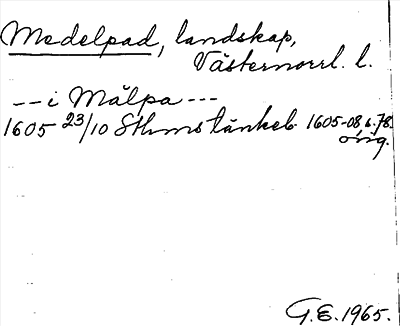 Medelpad, landskap,
Västernorrl. l.
-- i Mälpa ---
1605 23/10 Sthms tänkeb. 1605-08, s. 78.
orig.
G.E. 1965.